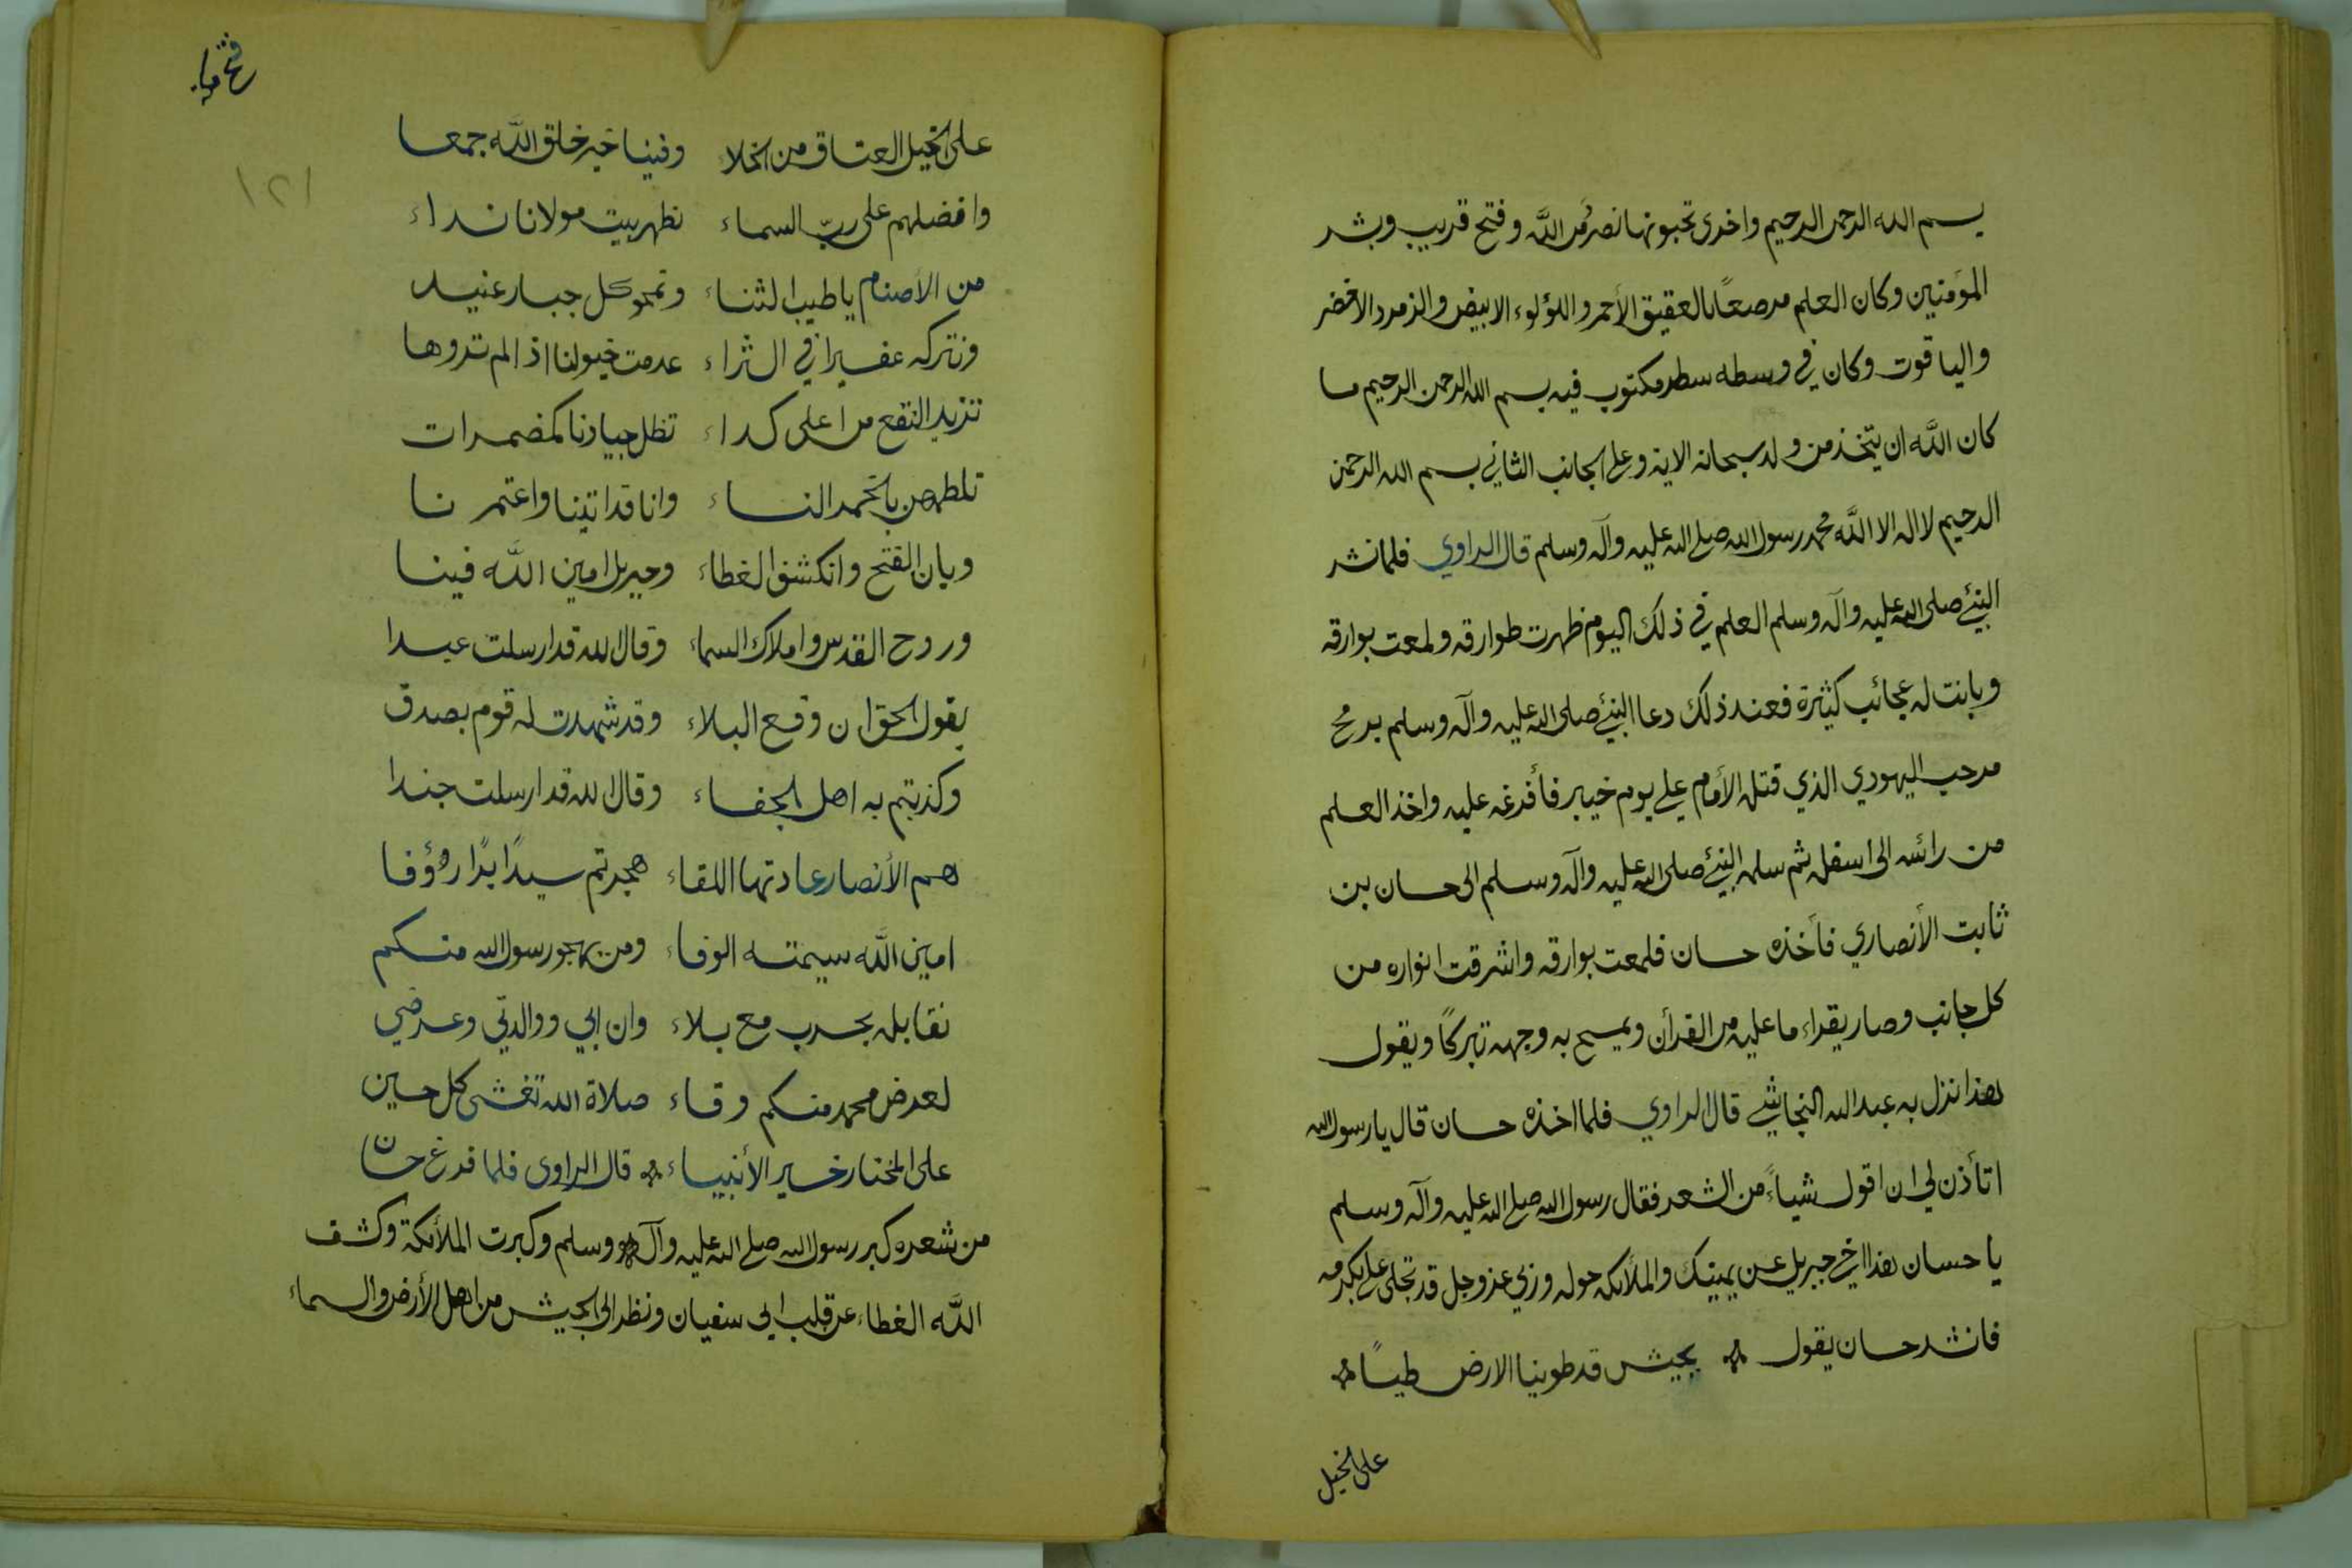 بسم الله الرحمن الرحيم واخرى تحبونها نصر من اللَّه وفتح قريب وبشر
المؤمنين وكان العلم مرصعًا بالعقيق الأحمر واللؤلوء الابيض والزمرد الاخضر
والياقوت وكان في وسطه سطر مكتوب فيه بسم الله الرحمن الرحيم ما
كان اللَّه ان يتخذ من ولد سبحانه الاية وعلى الجانب الثاني بسم الله الرحمن
الرحيم لا اله الا اللَّه محمد رسول الله صلى الله عليه وآله وسلم قال الراوي فلما نشر
النبئ صلى الله عليه وآله وسلم العلم في ذلك اليوم ظهرت طوارقه ولمعت بوارقه
وبانت له عجائب كثيرة فعند ذلك دعا النبئ صلى الله عليه وآله وسلم برمح
مرحب اليهودي الذي قتله الأمام علي يوم خيبر فأفرغه عليه واخذ العلم
من رائسه الى اسفله ثم سلمه النبئ صلى الله عليه وآله وسلم الى حسان بن
ثابت الأنصاري فأخذه حسان فلمعت بوارقه واشرقت انواره من
كل جانب وصار يقراء ما عليه من القرأن ويمسح به وجهه تبركًا ويقول
هذا نزل به عبد الله النجاشي قال الراوي فلما اخذه حسان قال يا رسول الله
اتأذن لي ان اقول شياءً من الشعر فقال رسول الله صلى الله عليه وآله وسلم
يا حسان هذا اخي جبريل عن يمينك والملائكه حوله وربي عز وجل قد تجلى على بكرمه
فانشد حسان يقول بجيش قد طوينا الارض طيًا
على الخيل
فتح مكه
١٢١
على الخيل العتاق من الخلا وفينا خير خلق اللَّه جمعا
وافضلهم على ربّ السماء نطهر بيت مولانا نداء
من الأصنام يا طيب الثناء ونمحو كل جبار عنيد
ونتركه عفيرا في الثراء عدمت خيولنا اذا لم تروها
تزيد النقع من اعلى كداء تظل جيادنا كمضمرات
تلطمهن بالخمر النساء وانا قد اتينا واعتمرنا
وبان الفتح وانكشف الغطاء وجبريل امين اللَّه فينا
وروح القدس واملاك السماء وقال الله قد ارسلت عبدا
يقول الحق ان وقع البلاء وقد شهدت له قوم بصدق
وكذبتم به اهل الجفاء وقال الله قد ارسلت جندا
هم الأنصار عادتها اللقاء هجرتم سيدًا برًا رؤوفا
امين اللَّه سيمته الوفاء ومن يهجو رسول الله منكم
نقابله بحرب مع بلاء وان ابي ووالدتي وعرضي
لعرض محمد منكم وقاء صلاة الله تغشى كل حين
على المختار خير الأنبياء قال الراوي فلما فرغ حسان
من شعره كبر رسول الله صلى الله عليه وآله وسلم وكبرت الملائكة وكشف
اللَّه الغطاء عن قلب ابي سفيان ونظر الى الجيش من اهل الأرض والسماء